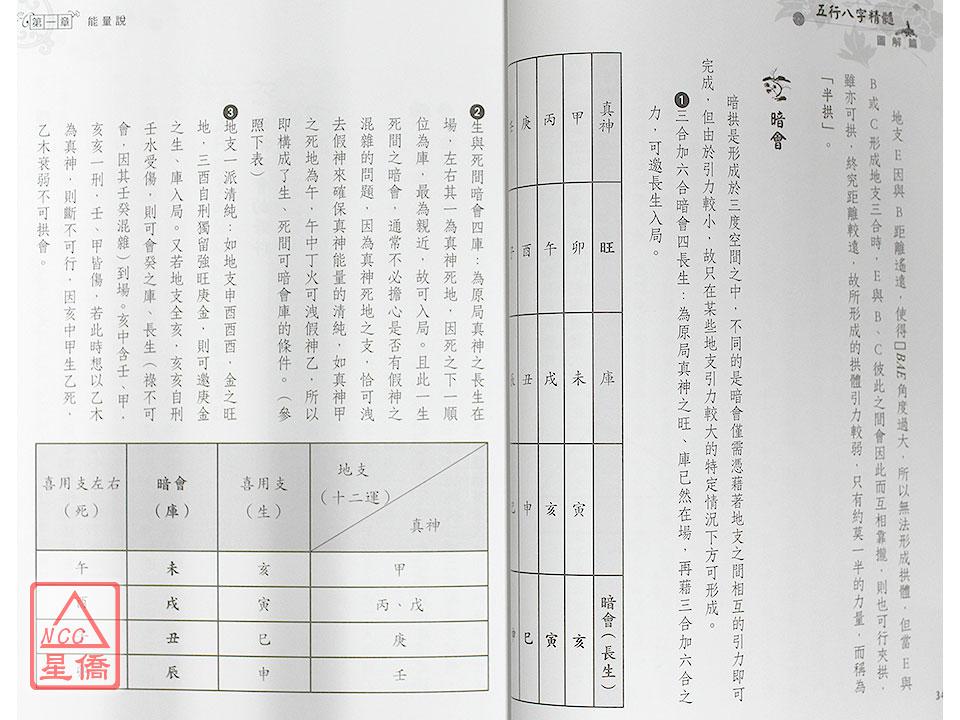 五行八字精髓
圖解篇
地支E因與B距離遙遠，使得□BAE角度過大，所以無法形成拱體，但當E與
B或C形成地支三合時，E與B、C彼此之間會因此而互相靠攏，則也可行夾拱，
雖亦可拱，終究距離較遠，故所形成的拱體引力較弱，只有約莫一半的力量，而稱為
「半拱」。
暗會
暗拱是形成於三度空間之中，不同的是暗會僅需憑藉著地支之間相互的引力即可
完成，但由於引力較小，故只在某些地支引力較大的特定情況下方可形成。
❶三合加六合暗會四長生：為原局真神之旺、庫已然在場，再藉三合加六合之
力，可邀長生入局。
真神 旺 庫 暗會（長生）
甲 卯 未 寅 亥
丙 午 戌 亥 寅
庚 酉 丑 申 巳
34
第一章 能量說
❷生與死間暗會四庫：為原局真神之長生在
場，左右其一為真神死地，因死之下一順
位為庫，最為親近，故可入局。且此一生
死間之暗會，通常不必擔心是否有假神之
混雜的問題，因為真神死地之支，恰可洩
去假神來確保真神能量的清純，如真神甲
之死地為午，午中丁火可洩假神乙，所以
即構成了生、死間可暗會庫的條件。（參
照下表）
❸地支一派清純：如地支申酉酉酉，金之旺
地，三酉自刑獨留強旺庚金，則可邀庚金
之生、庫入局。又若地支全亥，亥亥自刑
壬水受傷，則可會癸之庫、長生（祿不可
會，因其壬癸混雜）到場。亥中含壬、甲，
亥亥一刑，壬、甲皆傷，若此時想以乙木
為真神，則斷不可行，因亥中甲生乙死，
乙木衰弱不可拱會。
地支（十二運） 真神 喜用支（生） 暗會（庫） 喜用支左右（死）
甲 亥 未 午
丙、戊 寅 戌
庚 巳 丑
壬 申 辰
NCC
星僑